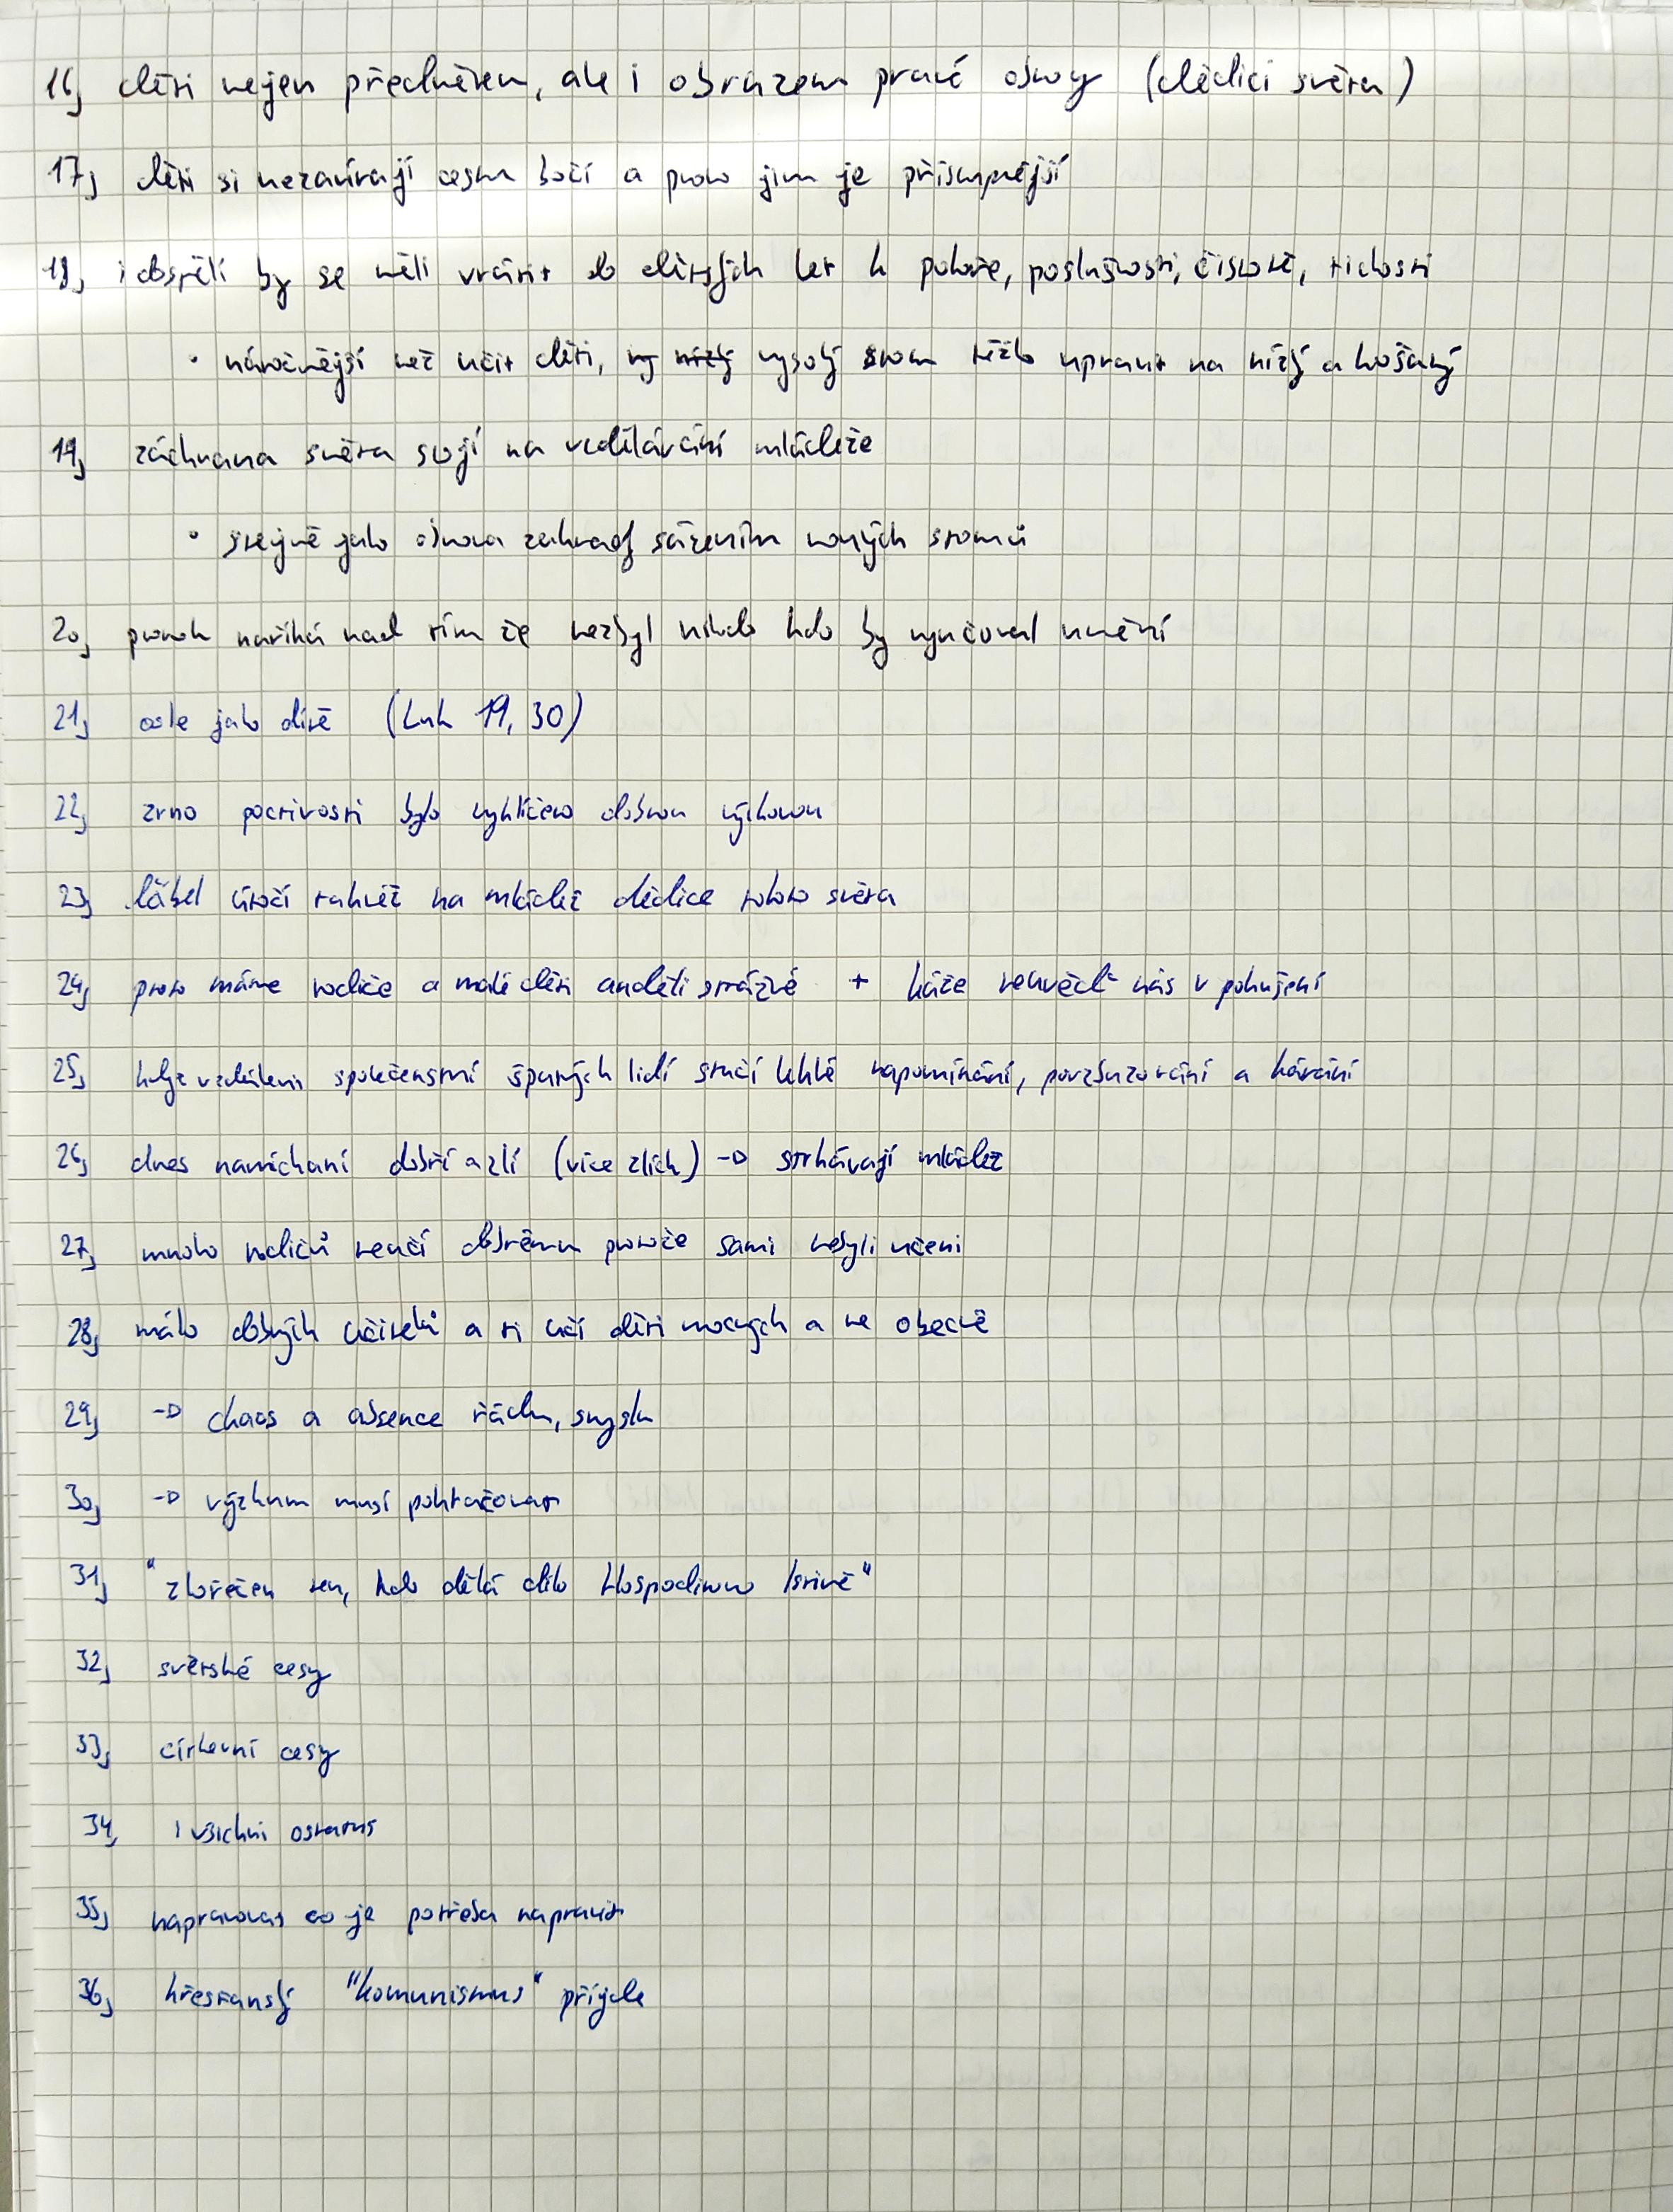 16, děti nejen předmětem, ale i obrazem pravé obnovy (dědici světa)
17, děti si nezavírají cestu boží a proto jim je přístupnější
18, i dospělí by se měli vrátit do dětských let k pokoře, poslušnosti, čistotě, tichosti
• náročnější než učit děti, vysoký strom těžko upravit na nízký a košatý
19, záchrana světa stojí na vzdělávání mládeže
• stejně jako obnova zahrady sázením nových stromů
20, prorok naříká nad tím že nezbyl nikdo kdo by vyučoval umění
21, osle jako dítě (Luk 19, 30)
22, zrno poctivosti bylo vyklíčeno dobrou výchovou
23, ďábel útočí tahvěž na mládež dědice tohoto světa
24, proto máme rodiče a malé děti anděli strážné + káže neuvěď nás v pokušení
25, když vzdáleni společenství špatných lidí stačí lehké napomínání, povzbuzování a kárání
26, dnes namícháni dobří a zlí (více zlích) → strhávají mládež
27, mnoho rodičů neučí dobrému protože sami nebyli učeni
28, málo dobrých učitelů a ti učí děti mocných a ne obecně
29, → chaos a absence řádu, smyslu
30, → výzkum musí pokračovat
31, "zlořečen ten, kdo dělá dílo Hospodinovo lstivě"
32, světské cesty
33, církevní cesty
34, i všichni ostatní
35, napravovat co je potřeba napravit
36, křesťanský "komunismus" přijde